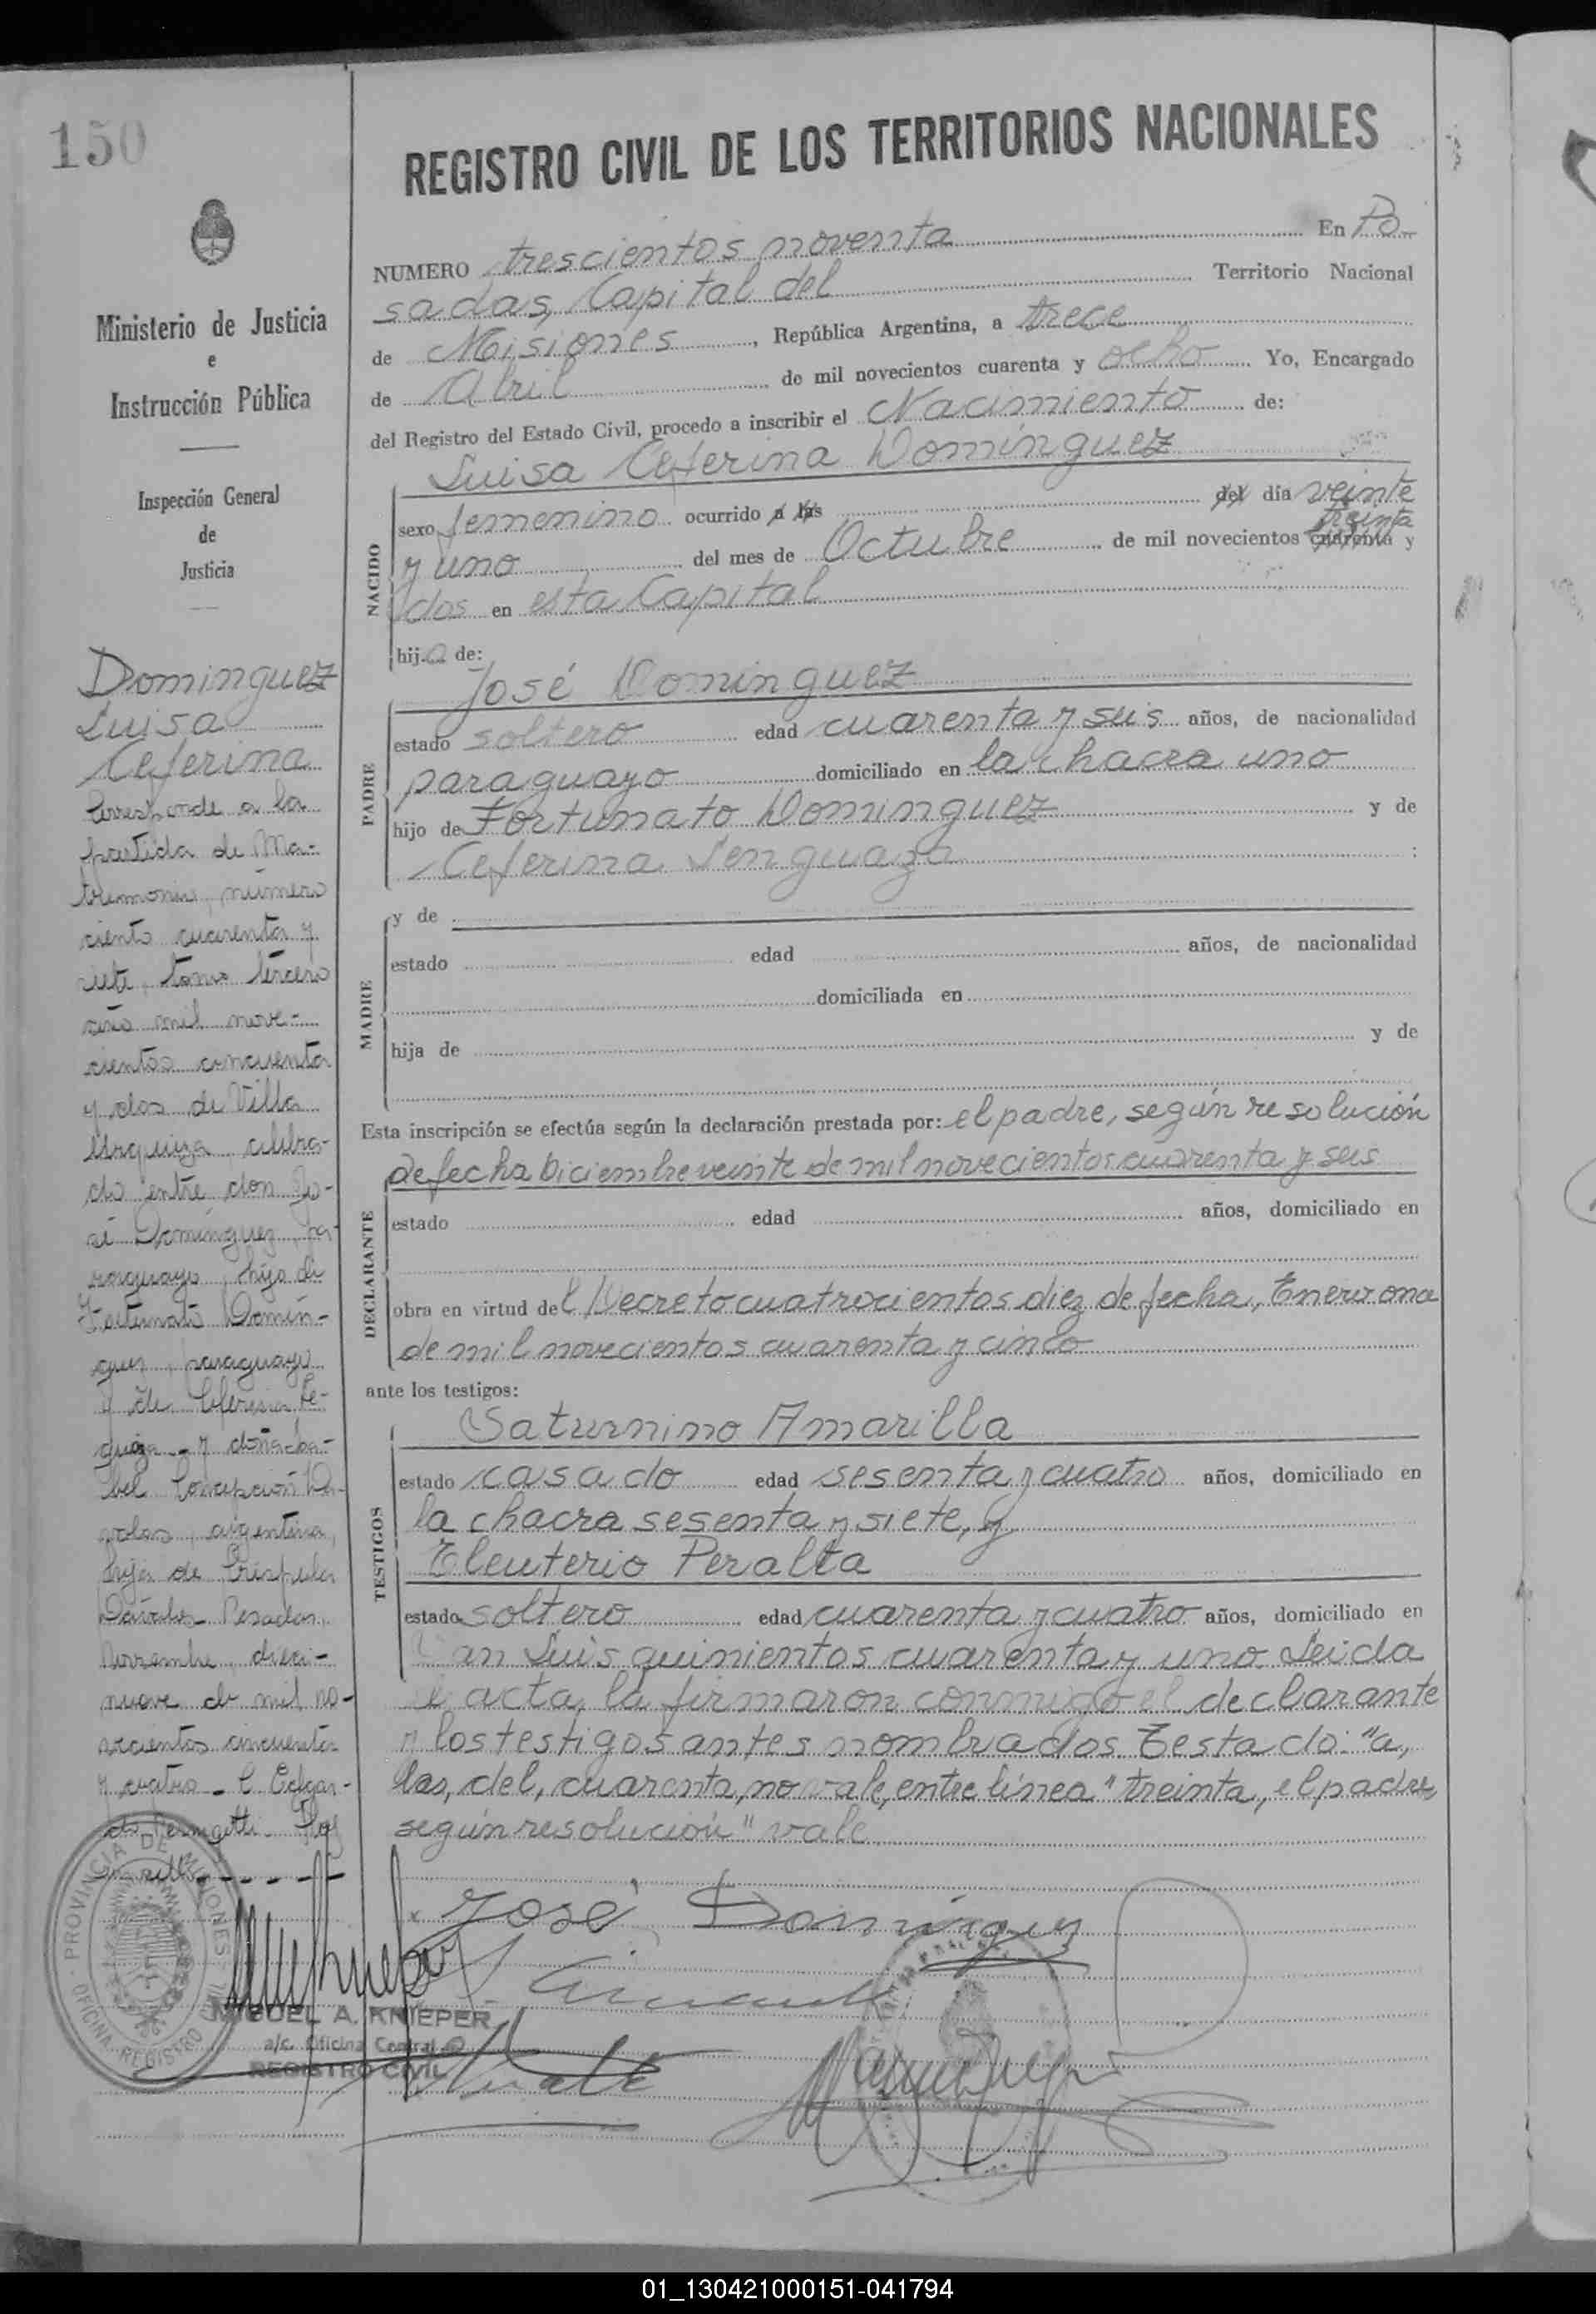 150
Ministerio de Justicia
e
Instrucción Pública
Inspección General
de
Justicia
Dominguez
Luisa
Ceferina
Corresponde a la
partida de Ma-
trimonio, número
ciento cuarenta y
siete, tomo tercero
año mil nove-
cientos cincuenta
y dos de Villa
Urquiza, celebra-
do entre don Jo-
sé Domínguez, pa-
raguayo, hijo de
Fortunato Domín-
guez, paraguayo
y de Ceferina
y doña
Concepción
argentina,
hija de
Posadas,
Noviembre, dieci-
nueve de mil no-
vecientos cincuenta
y cuatro -
PROVINCIA DE MISIONES
OFICINA REGISTRO
MIGUEL A. KNIEPER
a/c. Oficina Central
REGISTRO CIVIL
REGISTRO CIVIL DE LOS TERRITORIOS NACIONALES
NUMERO trescientos noventa En Po-
sadas, Capital del Territorio Nacional
de Misiones, República Argentina, a trece
de Abril de mil novecientos cuarenta y ocho Yo, Encargado
del Registro del Estado Civil, procedo a inscribir el Nacimiento de:
Luisa Ceferina Domínguez
NACIDO
sexo femenino ocurrido a las del día veinte
treinta
y uno del mes de Octubre de mil novecientos cuarenta y
dos en esta Capital
hija de:
José Dominguez
PADRE
estado soltero edad cuarenta y seis años, de nacionalidad
paraguayo domiciliado en la chacra uno
hijo de Fortunato Dominguez y de
Ceferina Lenguaza :
MADRE
y de
estado edad años, de nacionalidad
domiciliada en
hija de y de
Esta inscripción se efectúa según la declaración prestada por: el padre, según resolución
de fecha Diciembre veinte de mil novecientos cuarenta y seis
DECLARANTE
estado edad años, domiciliado en
obra en virtud del Decreto cuatrocientos diez de fecha, Enero once
de mil novecientos cuarenta y cinco
ante los testigos:
TESTIGOS
Saturnino Amarilla
estado casado edad sesenta y cuatro años, domiciliado en
la chacra sesenta y siete, y
Eleuterio Peralta
estado soltero edad cuarenta y cuatro años, domiciliado en
San Luis quinientos cuarenta y uno. Leida
el acta, la firmaron conmigo el declarante
y los testigos antes nombrados Testado: "a,
las, del, cuarenta, no vale, entre línea "treinta, el padre
según resolución" vale
José Dominguez
01_130421000151-041794